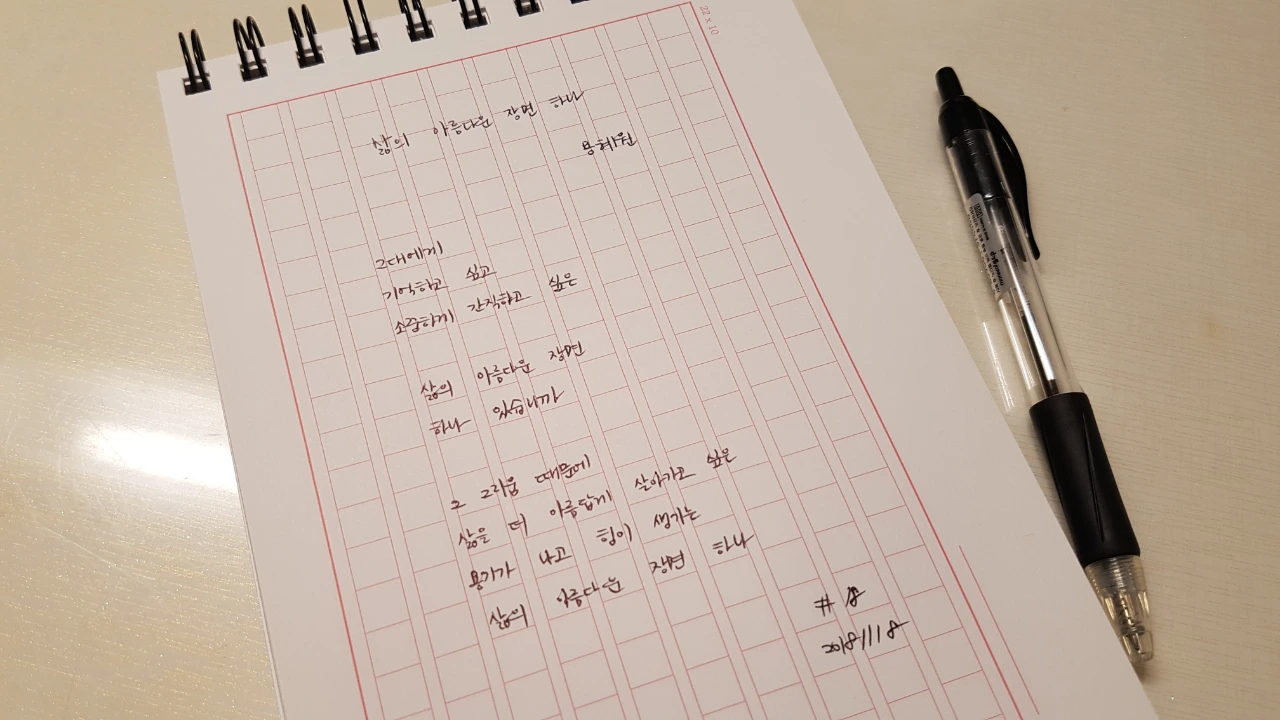 22 x 10
삶의 아름다운 장면 하나
용혜원
그대에게
기억하고 싶고
소중하게 간직하고 싶은
삶의 아름다운 장면
하나 있습니까
그 그리움 때문에
삶을 더 아름답게 살아가고 싶은
용기가 나고 힘이 생기는
삶의 아름다운 장면 하나
# 18
20181118